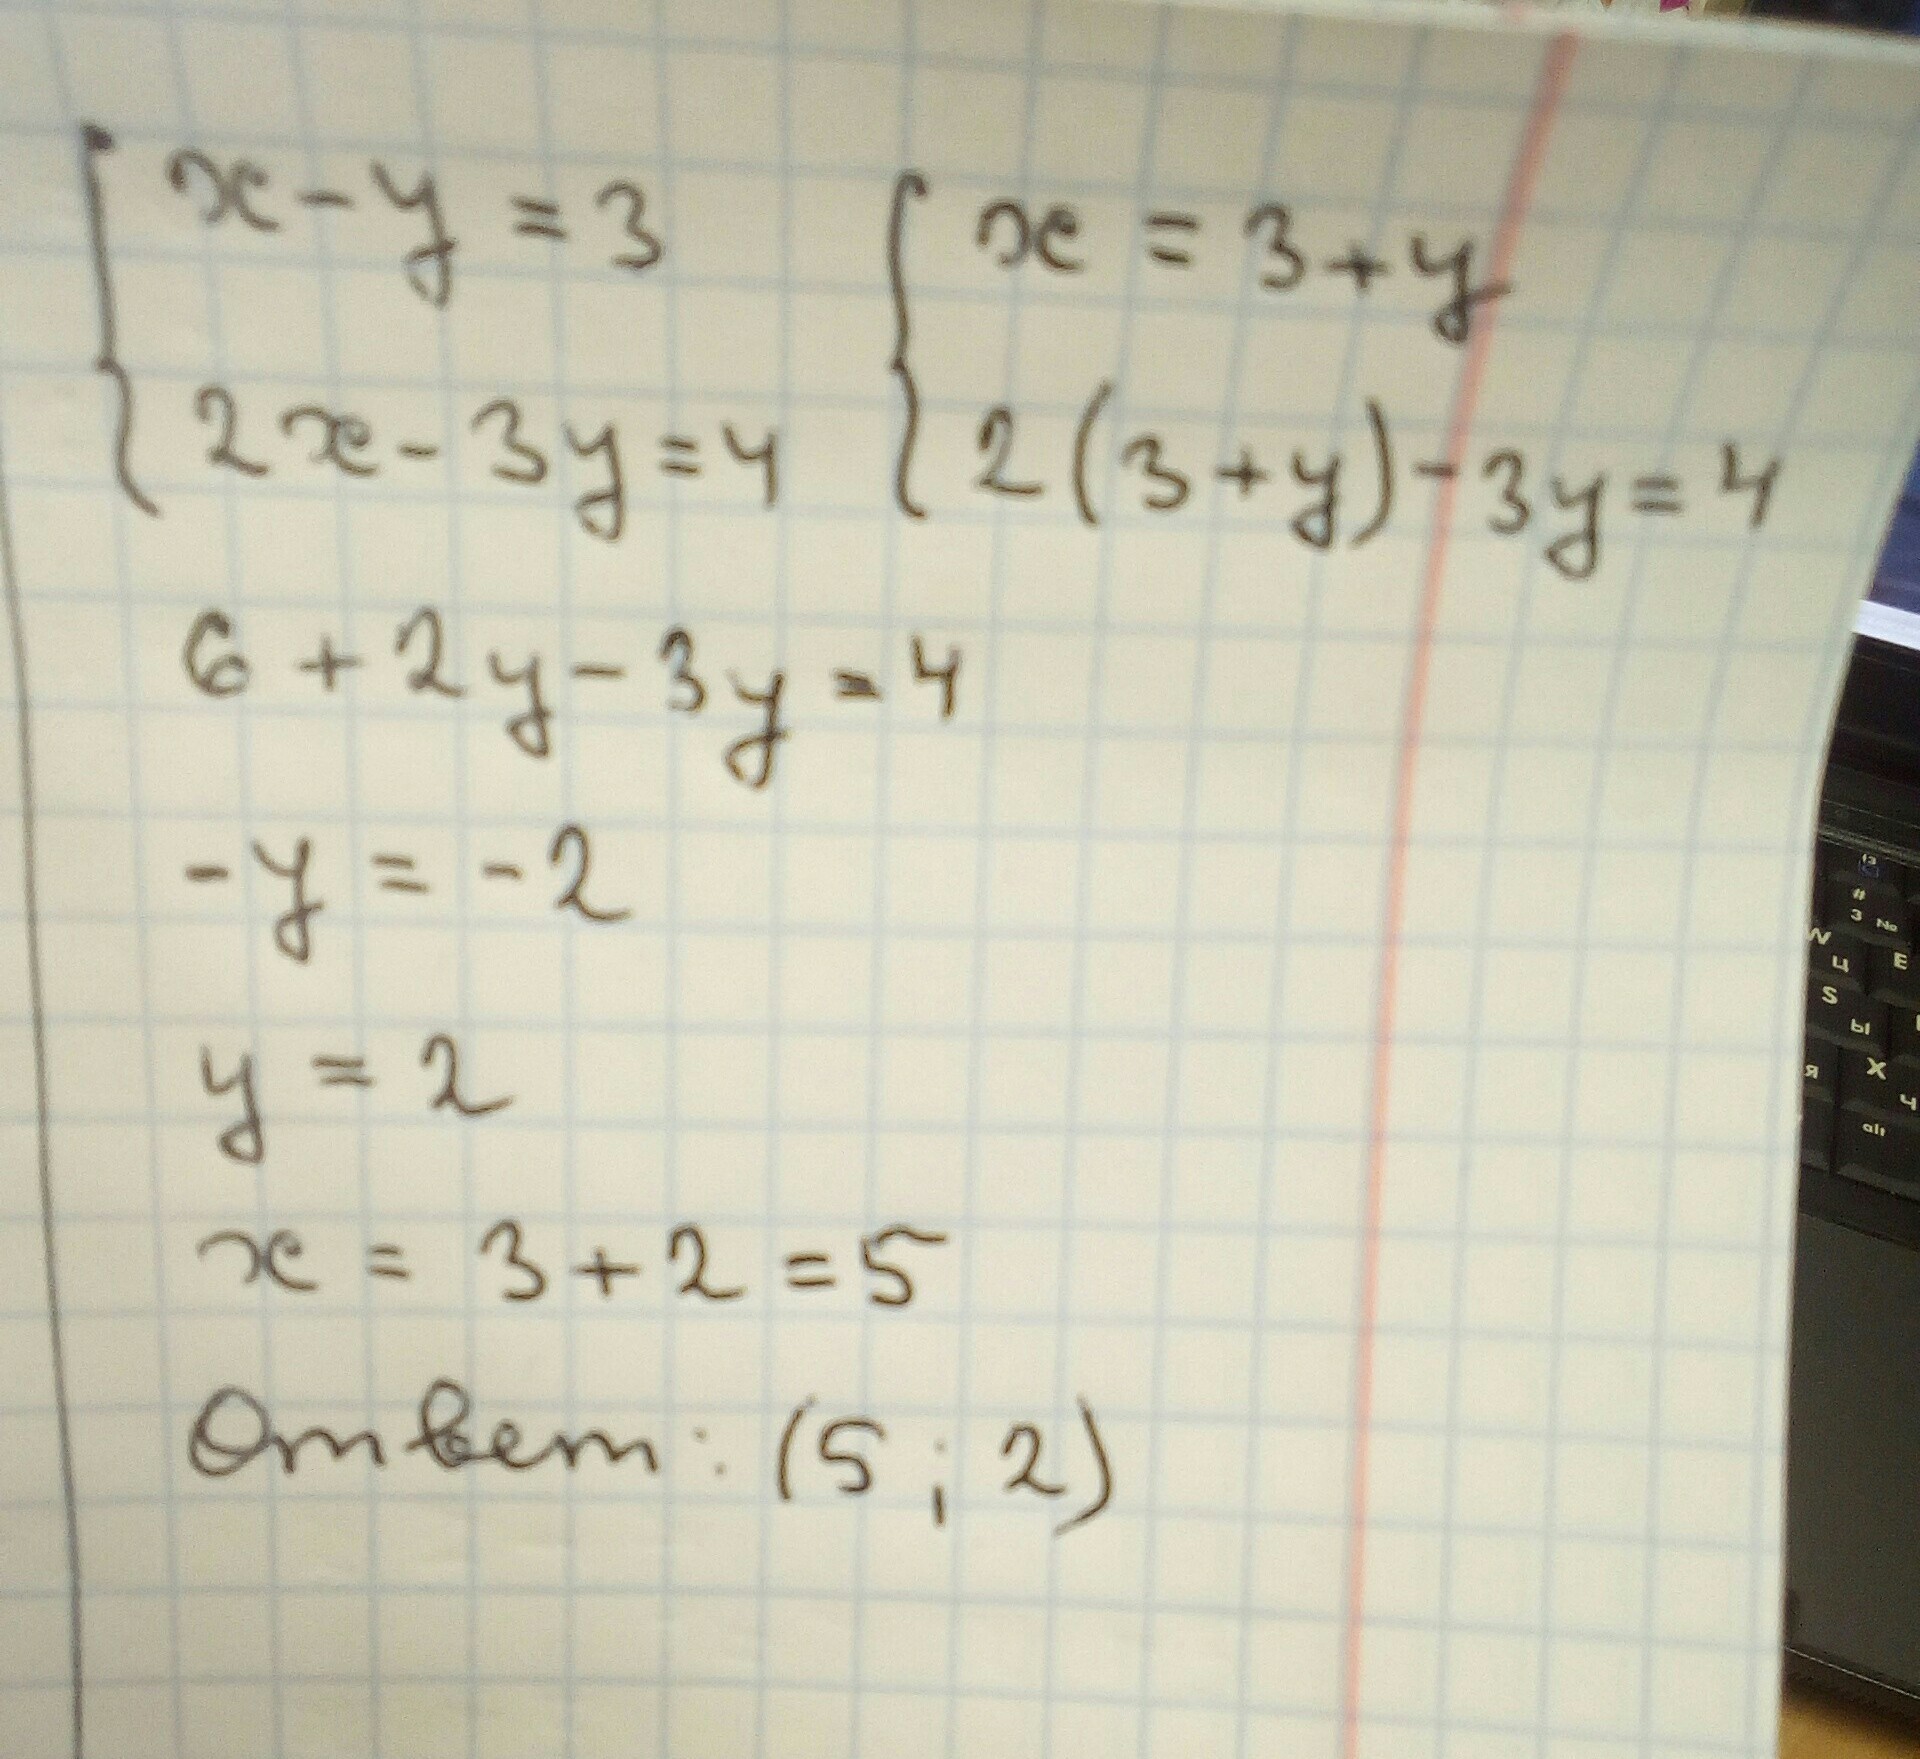 x - y = 3 x = 3 + y
2x - 3y = 4 2(3 + y) - 3y = 4
6 + 2y - 3y = 4
-y = -2
y = 2
x = 3 + 2 = 5
Ответ: (5; 2)
#
3 №
W
Ц E
S
Ы
Я X
Ч
alt